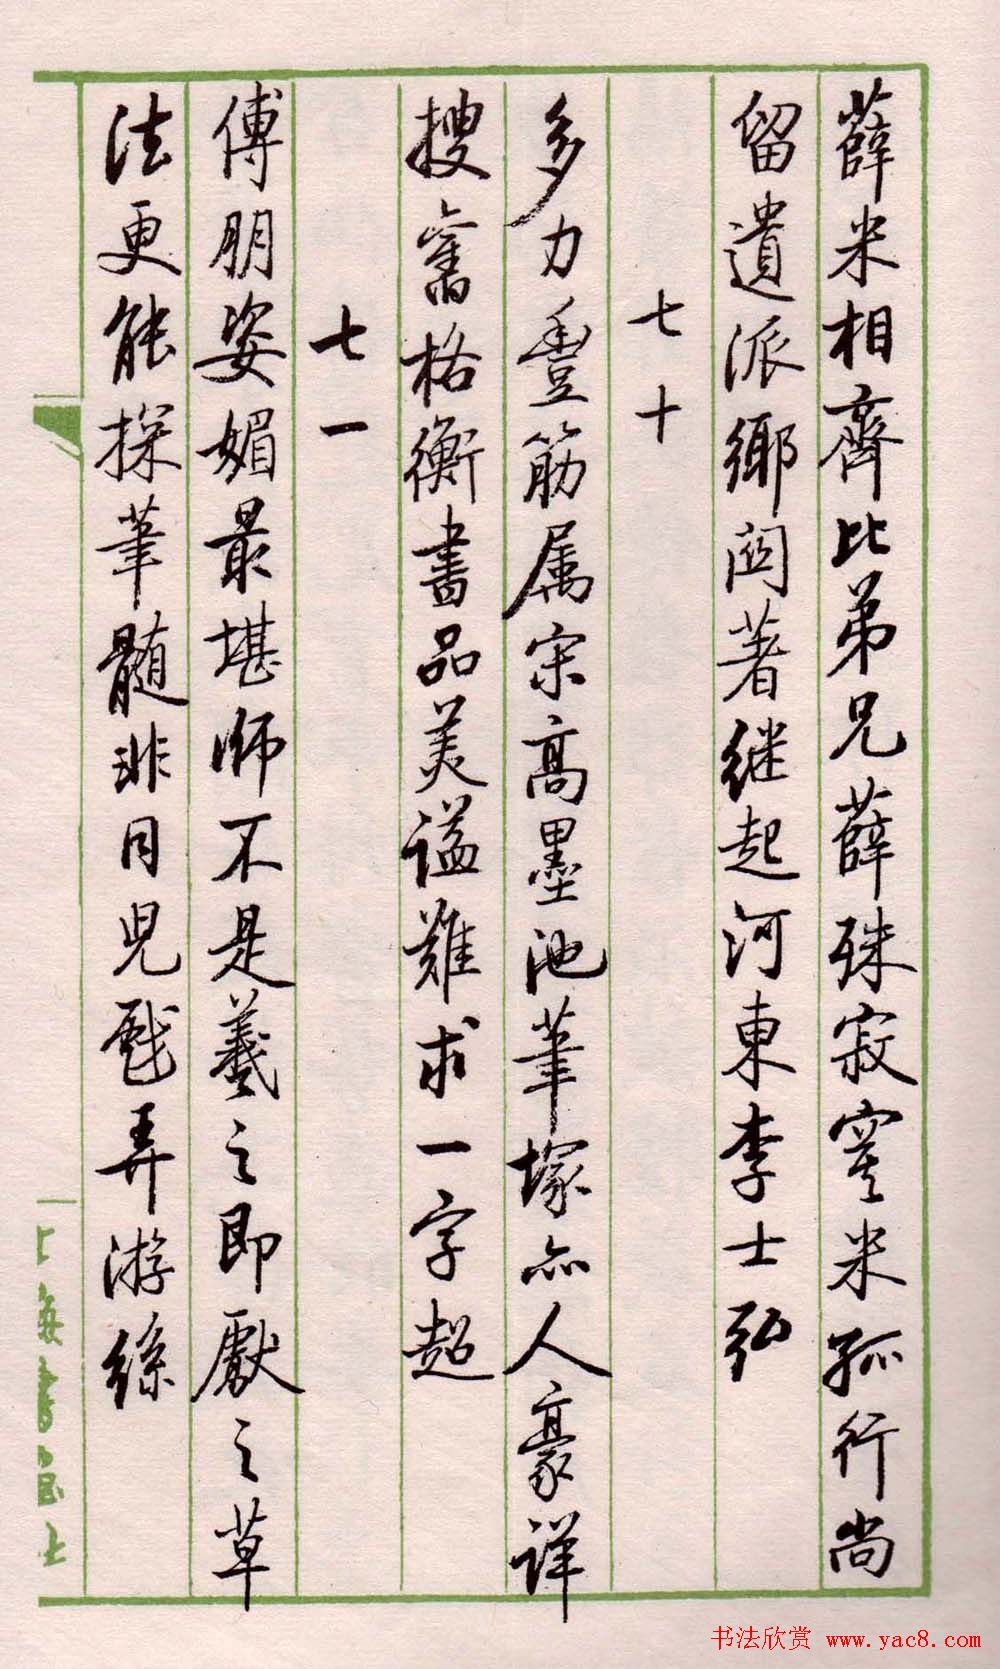 薛米相齊比弟兄薛殊寂寞米孤行尚
留遺派鄉閭著继起河東李士弘
七十
多力豐筋属宋高墨池筆塚亦人豪詳
搜舊格衡書品美谥難求一字超
七一
傅朋姿媚最堪師不是羲之即獻之草
法更能探筆髓非同兒戲弄游絲
上海書画社
书法欣赏 www.yac8.com